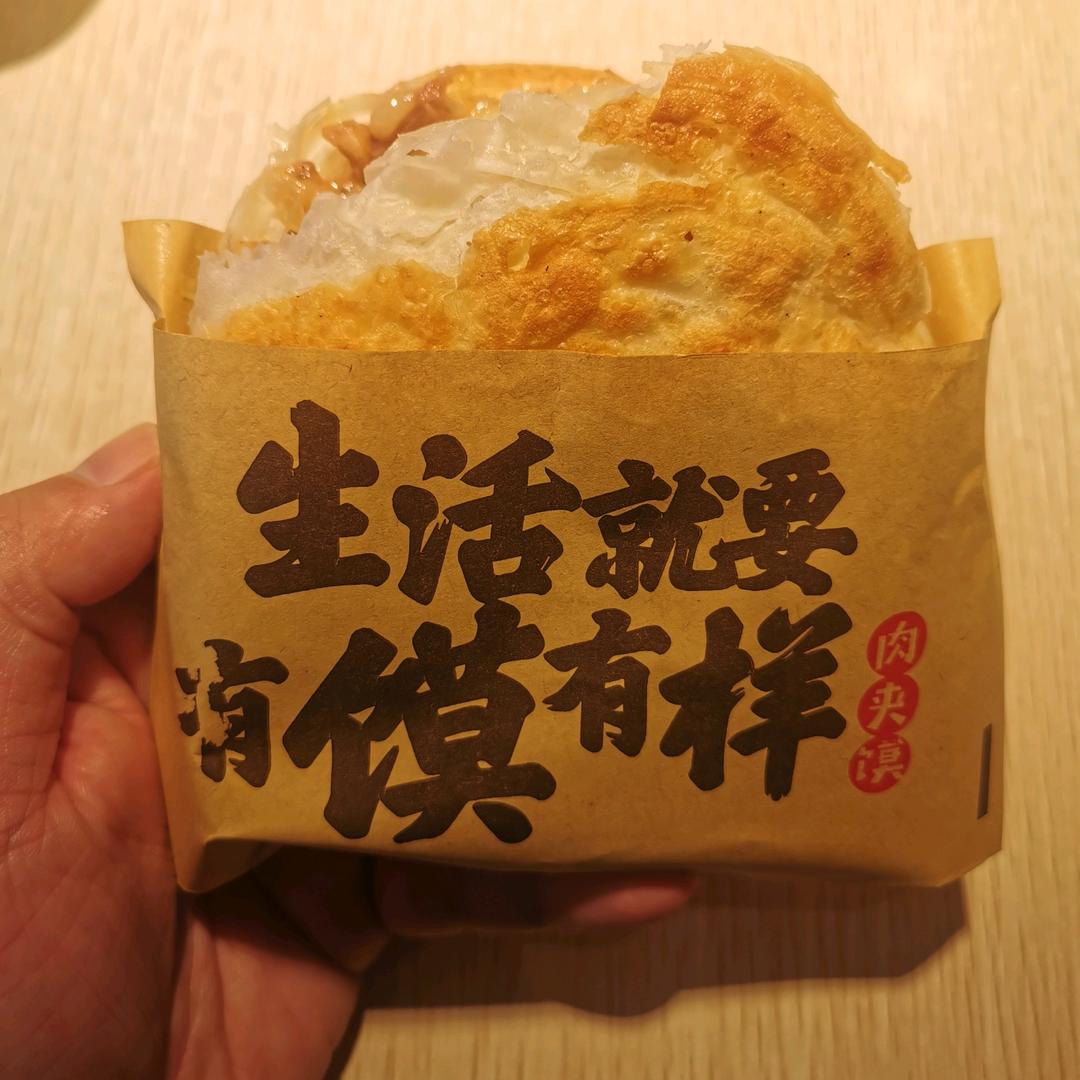 生活就要
有馍有样
肉夹馍